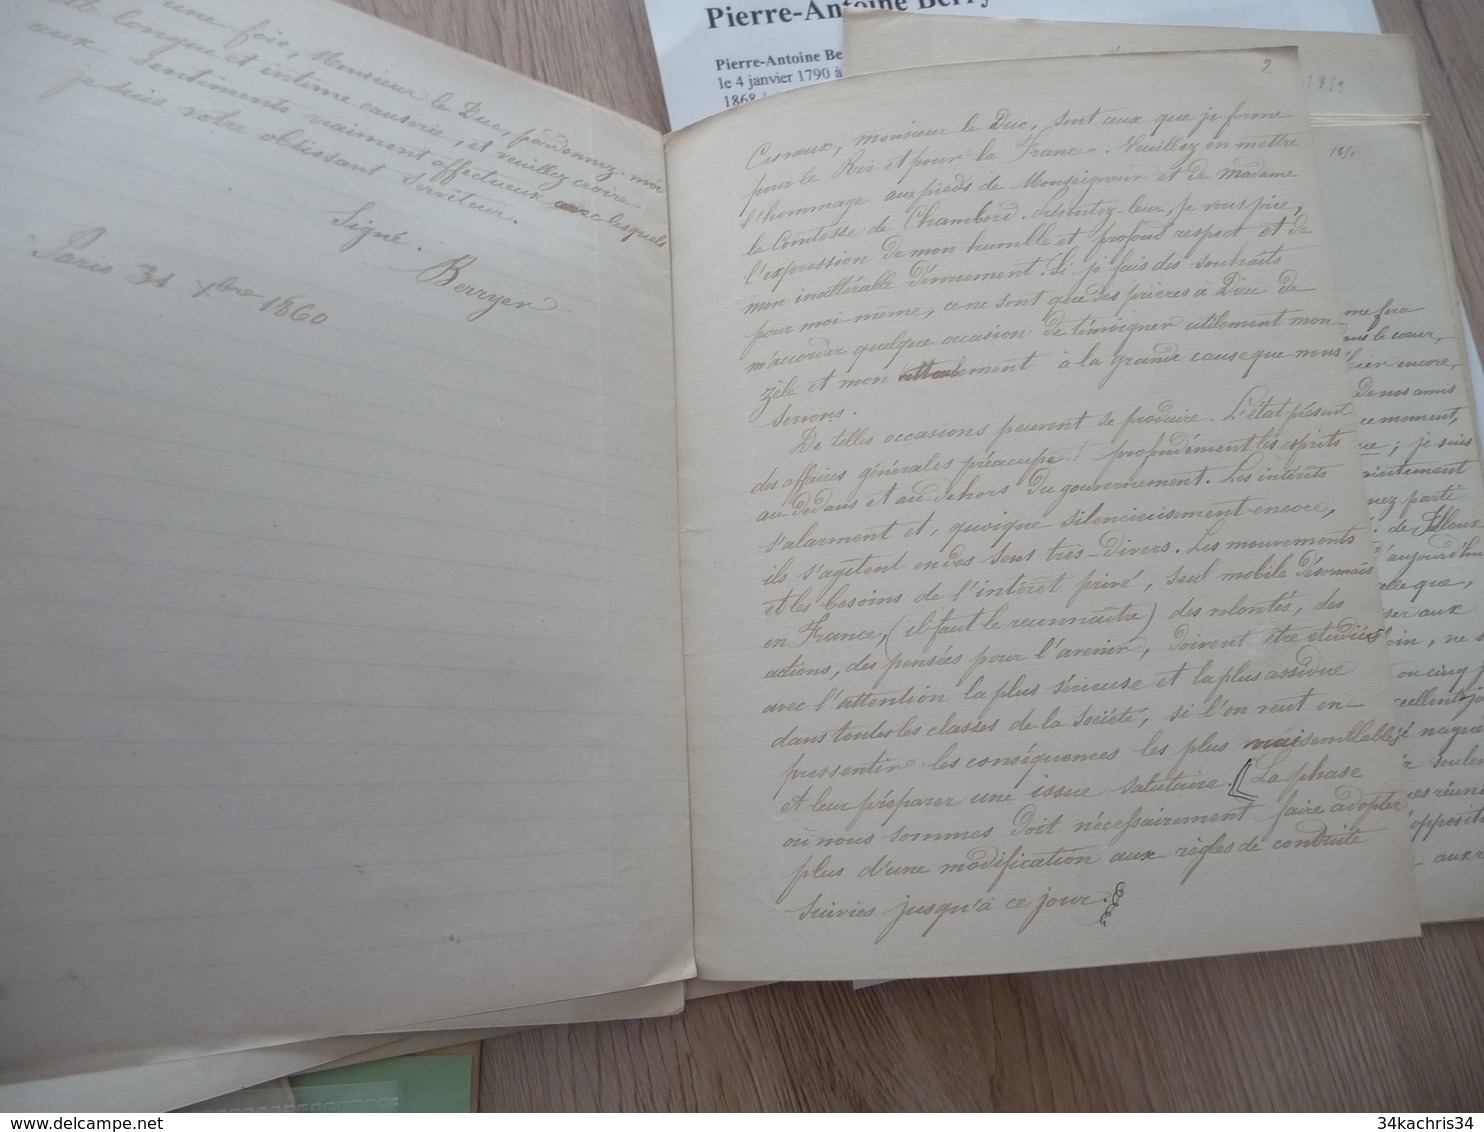 une fois, Monsieur le Duc, pardonnez-moi
cette longue et intime causerie, et veuillez croire
aux sentiments vraiment affectueux avec lesquels
je suis votre obéissant serviteur.
Signé. Berryer
Paris 31 Xbre 1860
Pierre-Antoine Berry
Pierre-Antoine Be
le 4 janvier 1790 à
1868 à
2
Ces vœux, monsieur le Duc, sont ceux que je forme
pour le Roi et pour la France. Veuillez en mettre
l'hommage aux pieds de Monseigneur et de madame
la Comtesse de Chambord. présentez-leur, je vous prie,
l'expression de mon humble et profond respect et de
mon inaltérable dévouement. Si je fais des souhaits
pour moi-même, ce ne sont que des prières à Dieu de
m'accorder quelque occasion de témoigner utilement mon
zèle et mon attachement à la grande cause que nous
servons.
De telles occasions peuvent se produire. L'état présent
des affaires générales préocupe profondément les esprits
au dedans et au dehors du gouvernement. Les intérêts
s'alarment et, quoique silencieusement encore,
ils s'agitent en des sens très-divers. Les mouvements
et les besoins de l'intérêt privé, seul mobile désormais
en France, (il faut le reconnaître) des volontés, des
actions, des pensées pour l'avenir, doivent être étudiées
avec l'attention la plus sérieuse et la plus assidue
dans toutes les classes de la société, si l'on veut en
pressentir les conséquences les plus vraisemblables
et leur préparer une issue salutaire. La phase
où nous sommes doit nécessairement faire adopter
plus d'une modification aux règles de conduite
suivies jusqu'à ce jour.
1859
1851
me fera
le cœur,
hier encore,
de nos amis
ce moment,
; je suis
parti
de Falloux
d'aujourd'hui
elle que,
aux
, ne
ou cinq
naque
opposit
aux
34kachris34